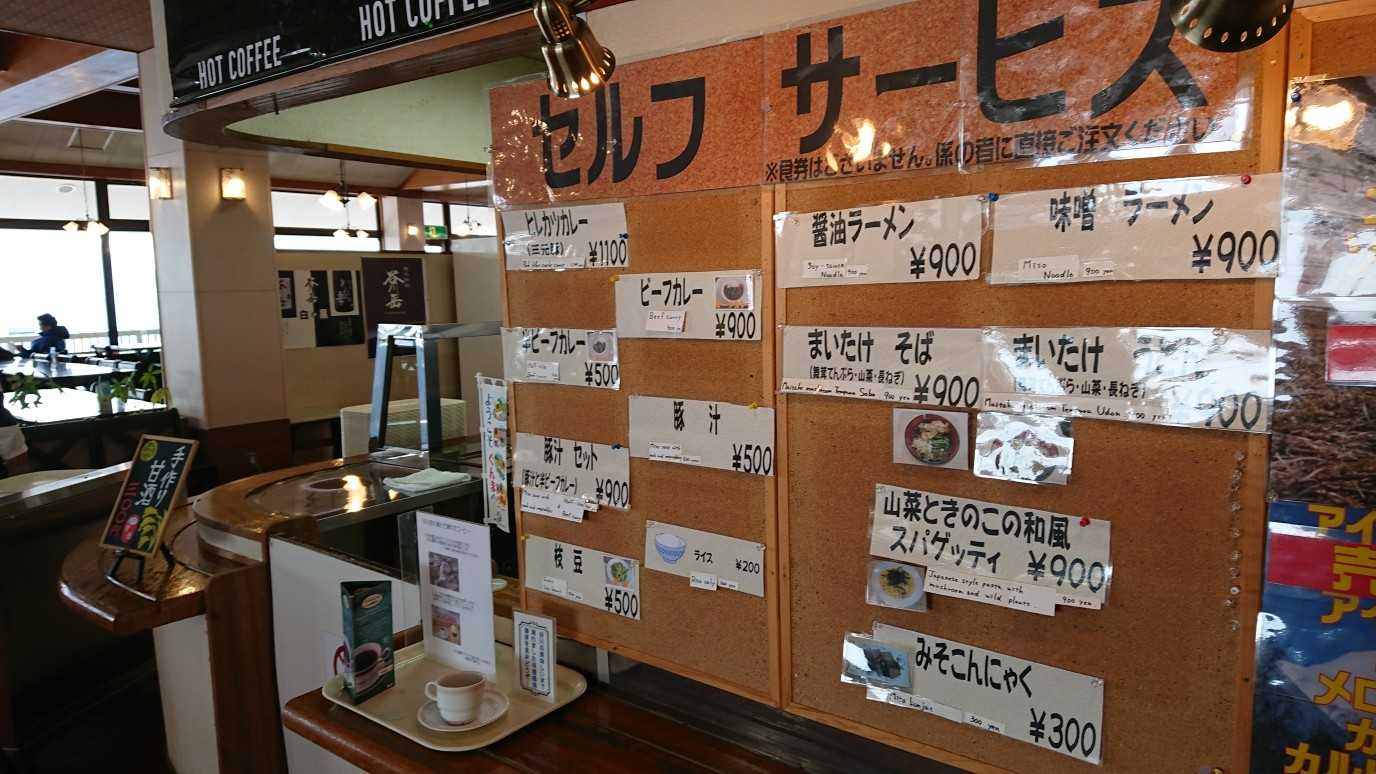 HOT COFFEE
HOT COFFEE
セルフ サービス
※食券はございません。係の者に直接ご注文ください
ヒレカツカレー
¥1100
ビーフカレー
Beef curry
¥900
半ビーフカレー
¥500
豚汁
¥500
豚汁 セット
(豚汁と半ビーフカレー)
¥900
枝豆
¥500
ライス
¥200
Rice only
醤油ラーメン
Soy-sauce
Noodle 900 yen
¥900
味噌 ラーメン
Miso
Noodle 900 yen
¥900
まいたけ そば
(舞茸てんぷら・山菜・長ねぎ)
¥900
Maitake mushroom Tempura Soba 900 yen
まいたけ
てんぷら・山菜・長ねぎ)
Udon
山菜ときのこの和風
スパゲッティ
¥900
Japanese style pasta with
mushroom and wild plants.
900 yen
みそこんにゃく
300 yen
¥300
手作り
甘酒
三〇〇円
ようこそ
谷川岳
アイ
売
アメ
メロ
カ
カル